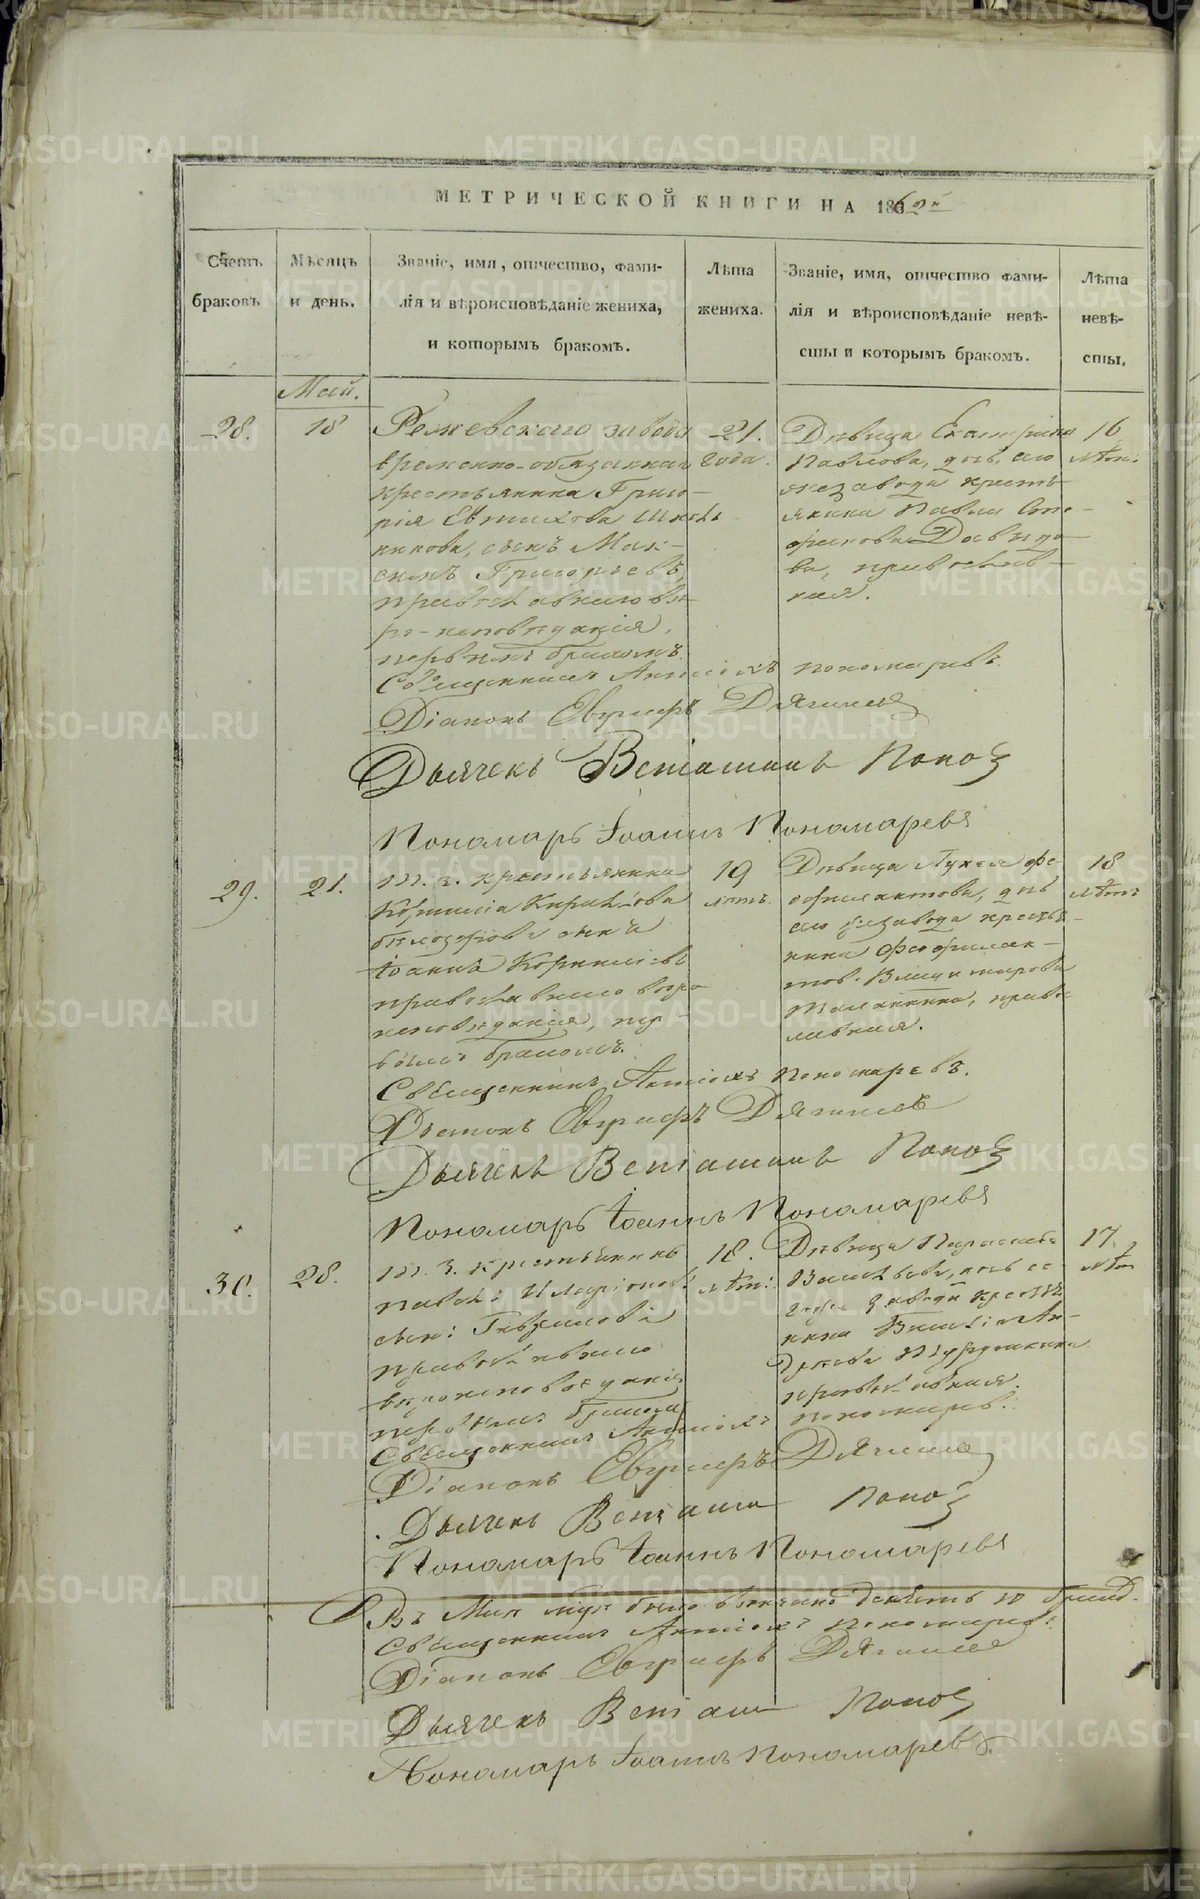 МЕТРИЧЕСКОЙ КНИГИ НА 1862й
Счетъ браковъ
Мѣсяцъ и день.
Званіе, имя, отчество, фами-
лія и вѣроисповѣданіе жениха,
и которымъ бракомъ.
Лѣта жениха.
Званіе, имя, отчество фами-
лія и вѣроисповѣданіе невѣ-
сты и которымъ бракомъ.
Лѣта невѣ-
сты.
Май.
28.
18
Режевскаго завода
временно-обязаннаго
крестьянина Григо-
рія Евтихіева
сынъ Мак-
симъ Григорьевъ,
православнаго вѣ-
ро-исповѣданія,
первымъ бракомъ.
21.
года.
Дѣвица Екатерина
Павлова, дочь, того
же завода кресть-
янина Павла Сте-
фанова Давыдо-
ва, православ-
ная.
16
лѣтъ.
Священникъ Антіохъ Пономаревъ.
Діаконъ Евграфъ Дягилев
Дьячекъ Веніаминъ Попов
Пономарь Іоаннъ Пономаревъ
29.
21.
т. з. крестьянина
Корнилія Кирилова
Бѣлоусова сынъ
Іоаннъ Корниліевъ
православнаго вѣро
исповѣданія, пер-
вымъ бракомъ.
19
лѣтъ.
Дѣвица Лукія Фе-
офилактова, дочь
того же завода кресть-
янина Феофилак-
та
православная.
18
лѣтъ
Священникъ Антіохъ Пономаревъ.
Діаконъ Евграфъ Дягилевъ
Дьячекъ Веніаминъ Попов
Пономарь Іоаннъ Пономаревъ
30.
28.
т. з. крестьянинъ
Павелъ Иларіоновъ
сынъ:
православнаго
вѣроисповѣданія
первымъ бракомъ
18.
лѣтъ:
Дѣвица Параскева
Васильева, дочь то
гоже завода кресть-
янина Василія Ан-
дреева
православная.
17.
лѣтъ
Священникъ Антіохъ Пономаревъ.
Діаконъ Евграфъ Дягилев
Дьячекъ Веніамин Попов
Пономарь Іоаннъ Пономаревъ
Въ Маѣ
Священникъ Антіохъ Пономаревъ
Діаконъ Евграфъ Дягилев
Дьячекъ Веніамин Попов
Пономарь Іоаннъ Пономаревъ
METRIKI.GASO-URAL.RU